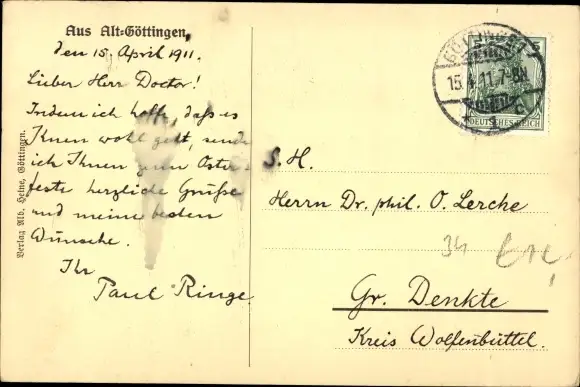 Aus Alt-Göttingen,
den 15. April 1911.
Lieber Herr Doctor!
Indem ich hoffe, daß es
Ihnen wohl geht, sende
ich Ihnen zum Oster-
feste herzliche Grüße
und meine besten
Wünsche.
Ihr
Paul Ringe.
Verlag Alb. Heine, Göttingen.
GÖTTINGEN
15.4.11.7-8N
c
5 5
DEUTSCHES REICH
S. H.
Herrn Dr. phil. O. Lerche
34
Gr. Denkte
Kreis Wolfenbüttel.